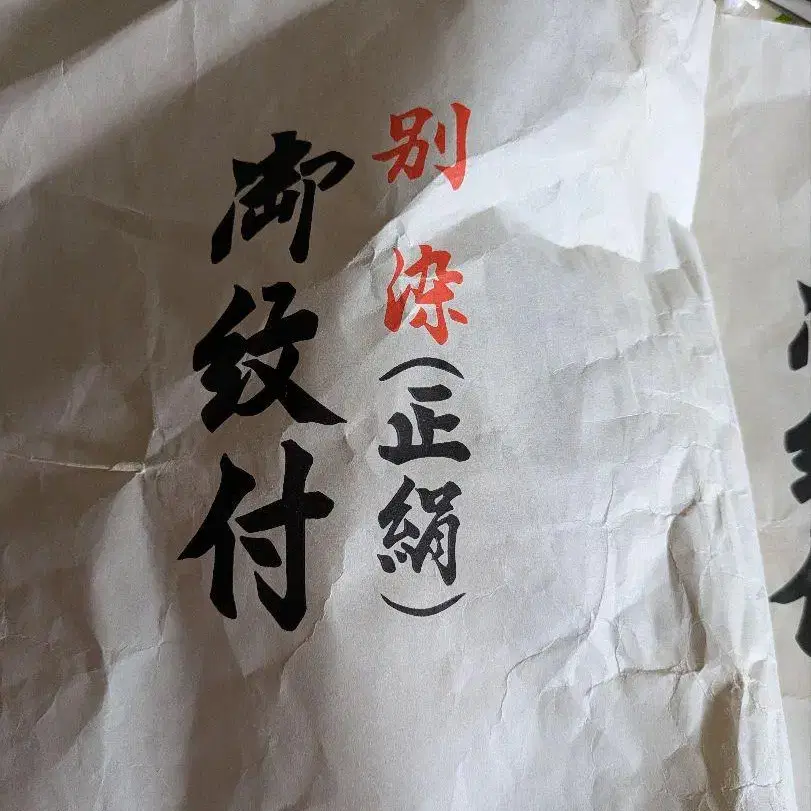 別染(正絹)
御紋付